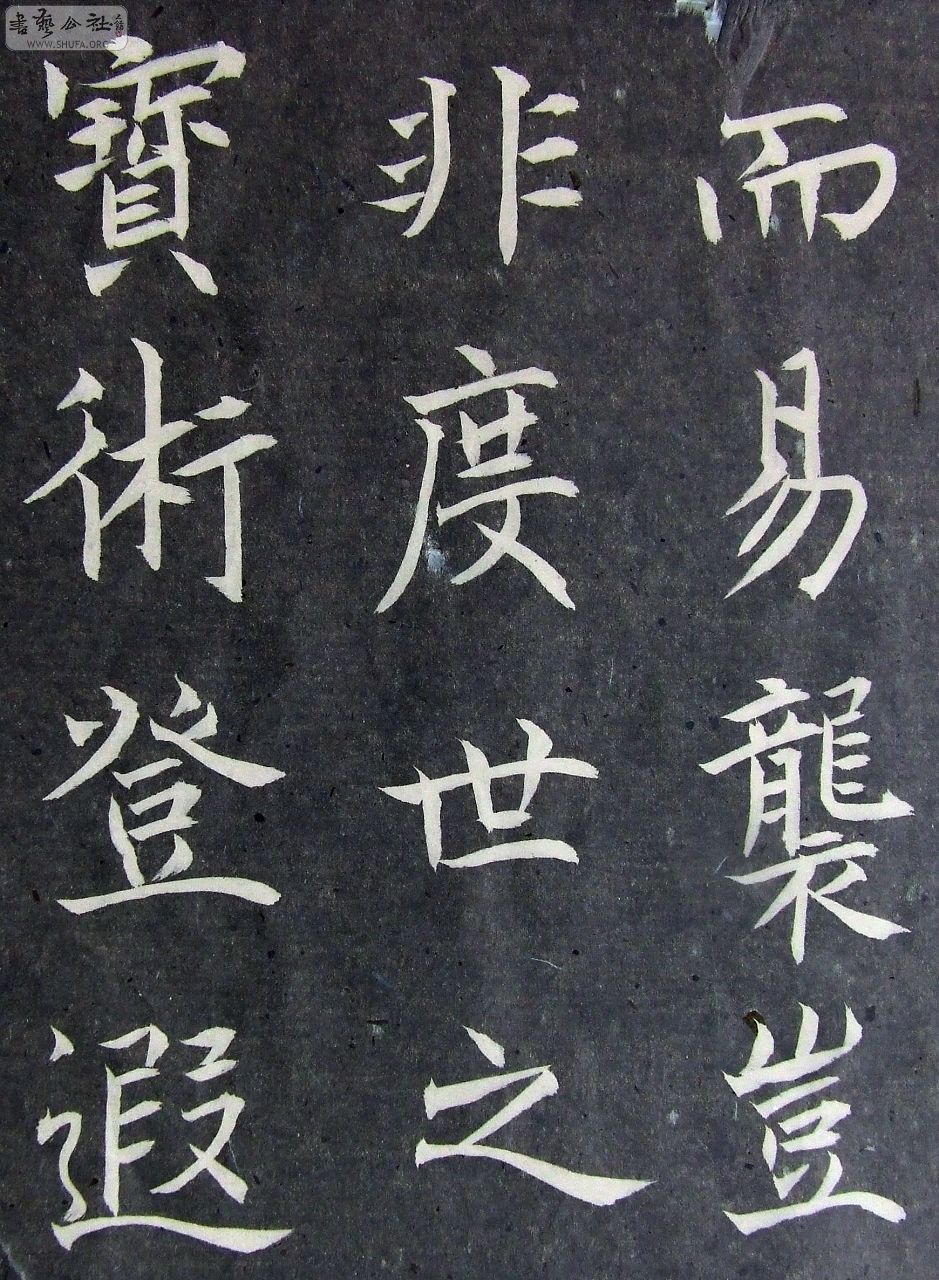 而易襲豈
非度世之
寶術登遐
書藝公社
WWW.SHUFA.ORG